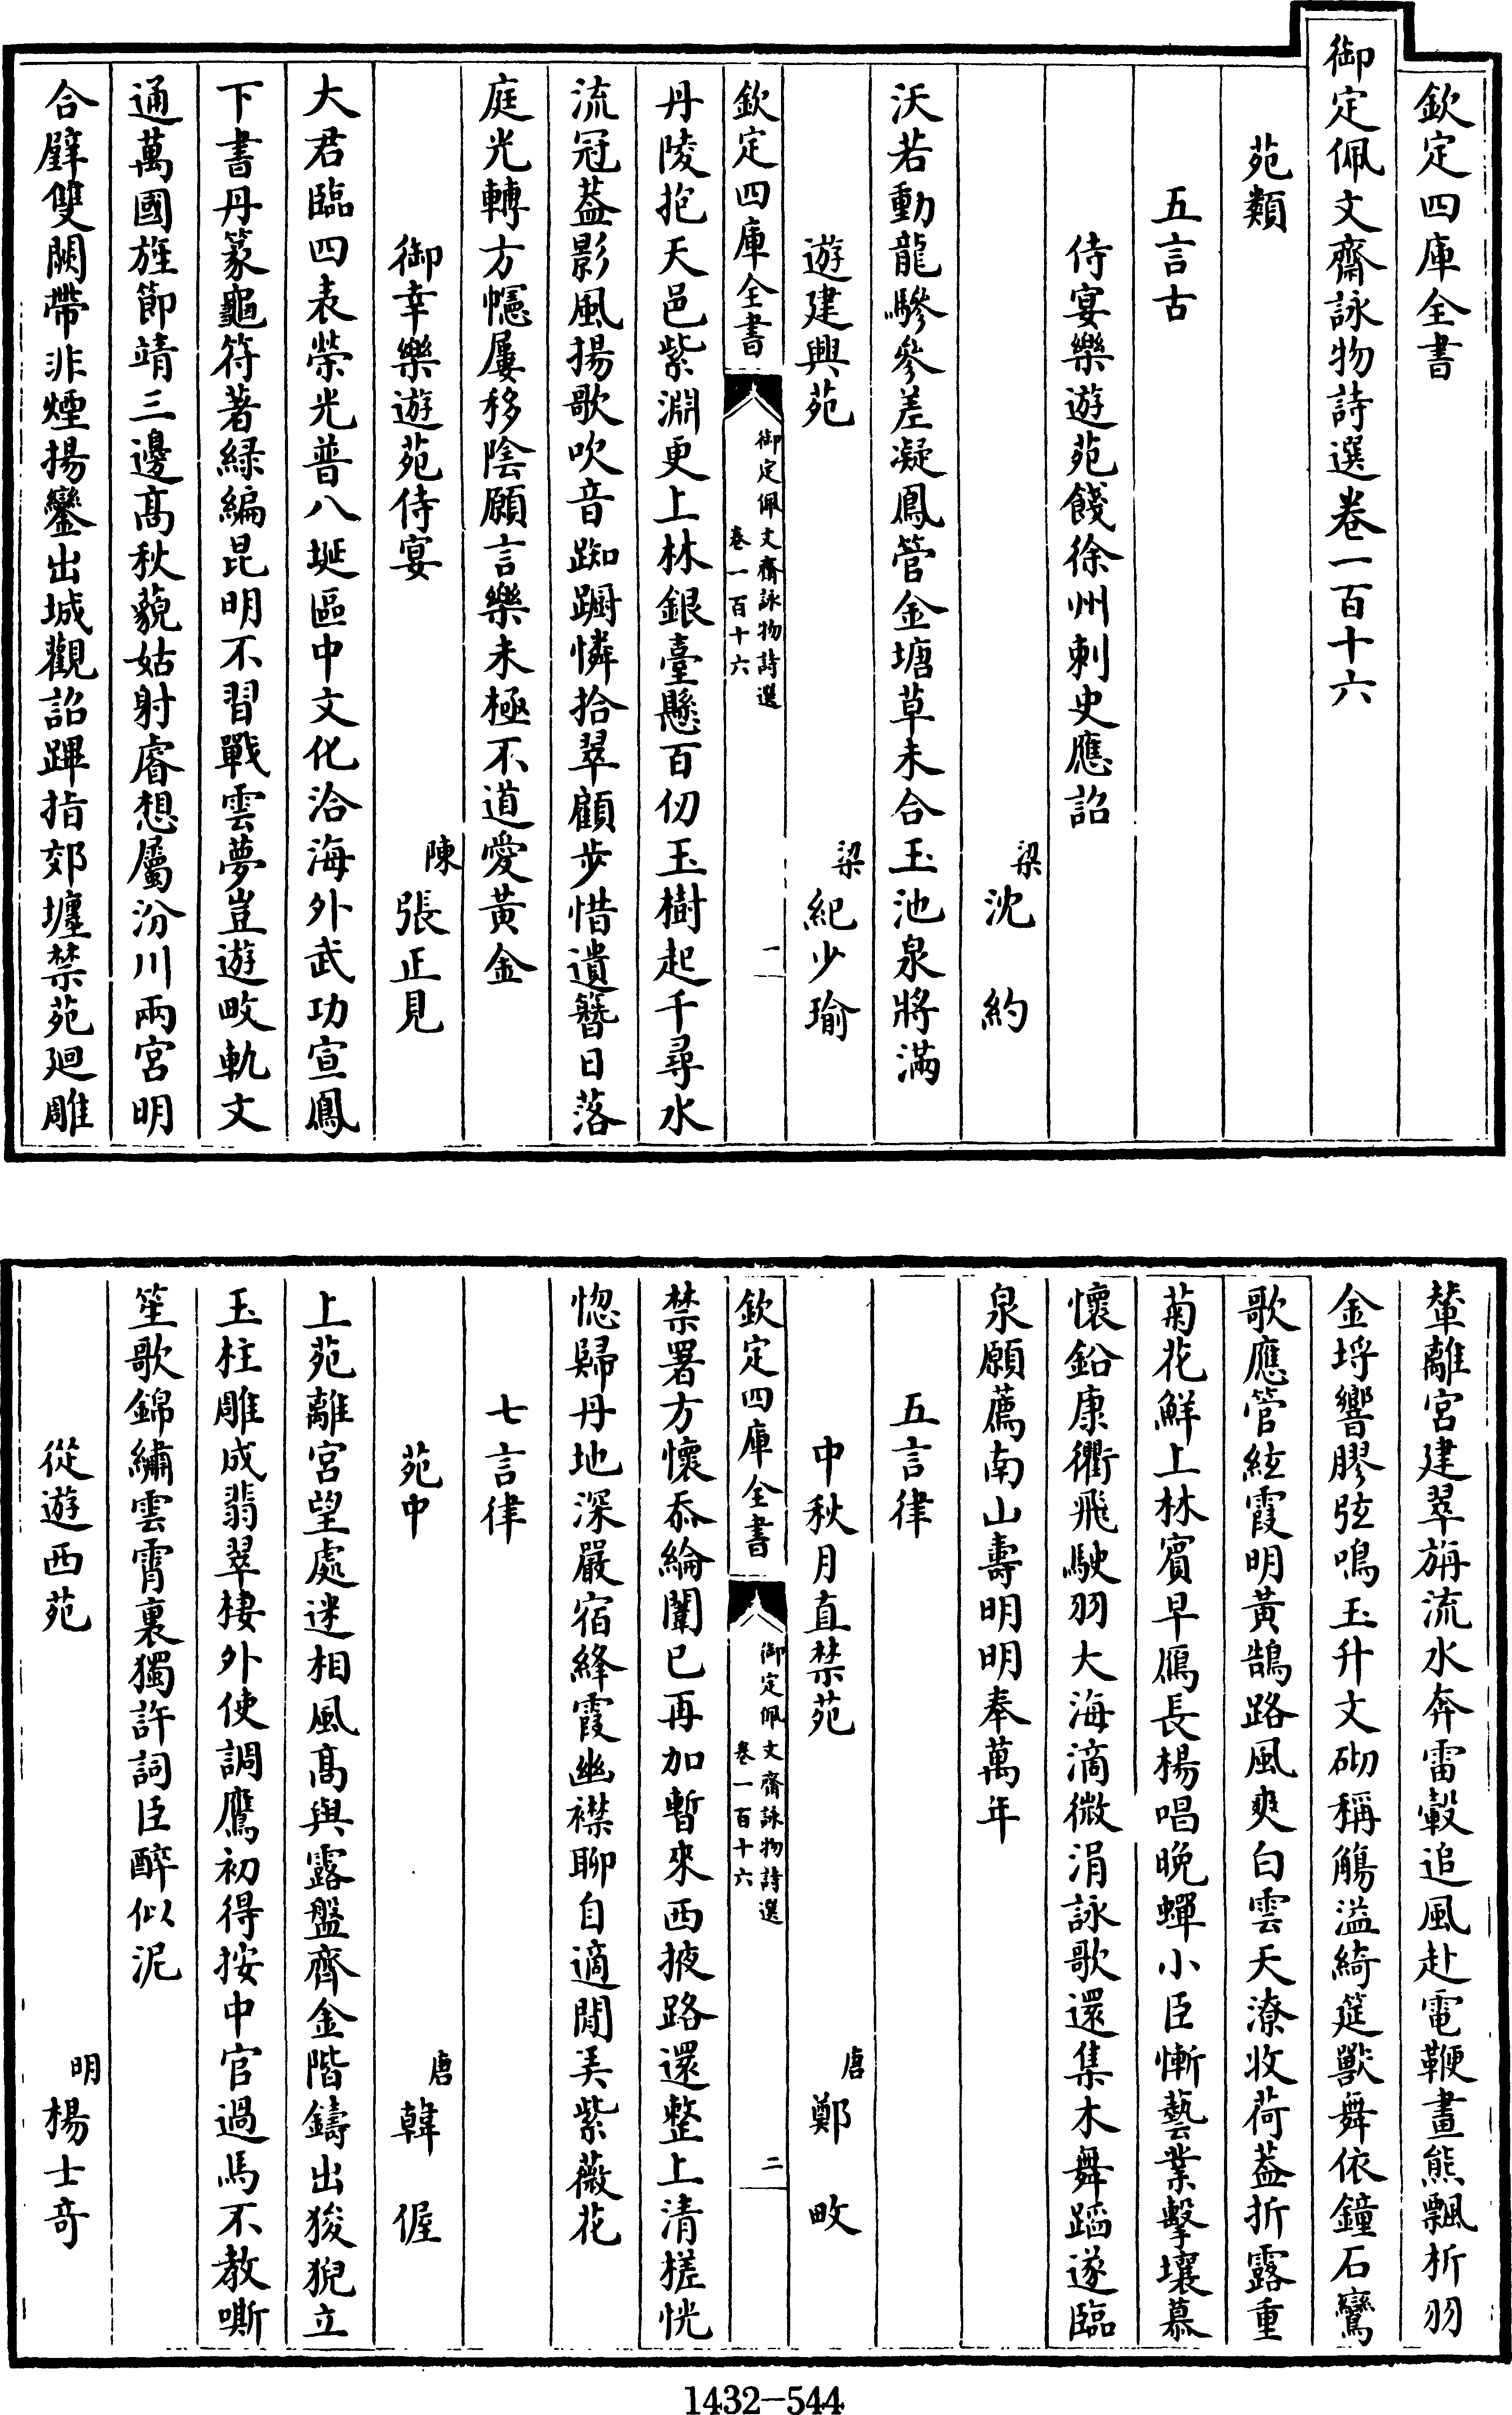 欽定四庫全書
御定佩文齋詠物詩選卷一百十六
苑類
五言古
侍宴樂遊苑餞徐州刺史應詔
梁沈約
沃若動龍驂參差凝鳳管金塘草未合玉池泉將滿
遊建興苑 梁紀少瑜
欽定四庫全書 御定佩文齋詠物詩選 卷一百十六 一
丹陵抱天邑紫淵更上林銀臺懸百仞玉樹起千尋水
流冠葢影風揚歌吹音踟蹰憐拾翠顧步惜遺簪日落
庭光轉方幰屢移陰願言樂未極不道愛黃金
御幸樂遊苑侍宴 陳張正見
大君臨四表榮光普八埏區中文化洽海外武功宣鳳
下書丹篆龜符著緑編昆明不習戰雲夢豈遊畋軌文
通萬國旌節靖三邊髙秋藐姑射睿想屬汾川兩宮明
合璧雙闕帶非煙揚鑾出城觀詔蹕指郊壥禁苑廻雕
輦離宮建翠旃流水奔雷轂追風赴電鞭畫熊飄析羽
金埒響膠弦鳴玉升文砌稱觴溢綺筵獸舞依鐘石鸞
歌應管絃霞明黃鵠路風爽白雲天潦收荷葢折露重
菊花鮮上林賓早鴈長楊唱晚蟬小臣慚藝業擊壤慕
懷鉛康衢飛駛羽大海滴微涓詠歌還集木舞蹈遂臨
泉願薦南山壽明明奉萬年
五言律
中秋月直禁苑 唐鄭畋
欽定四庫全書 御定佩文齋詠物詩選 卷一百十六 二
禁署方懷忝綸闈已再加暫來西掖路還整上清槎恍
惚歸丹地深嚴宿絳霞幽襟聊自適閒弄紫薇花
七言律
苑中 唐韓偓
上苑離宮望處迷相風髙與露盤齊金階鑄出狻猊立
玉柱雕成翡翠棲外使調鷹初得按中官過馬不教嘶
笙歌錦繡雲霄裏獨許詞臣醉似泥
從遊西苑 明楊士竒
1432-544